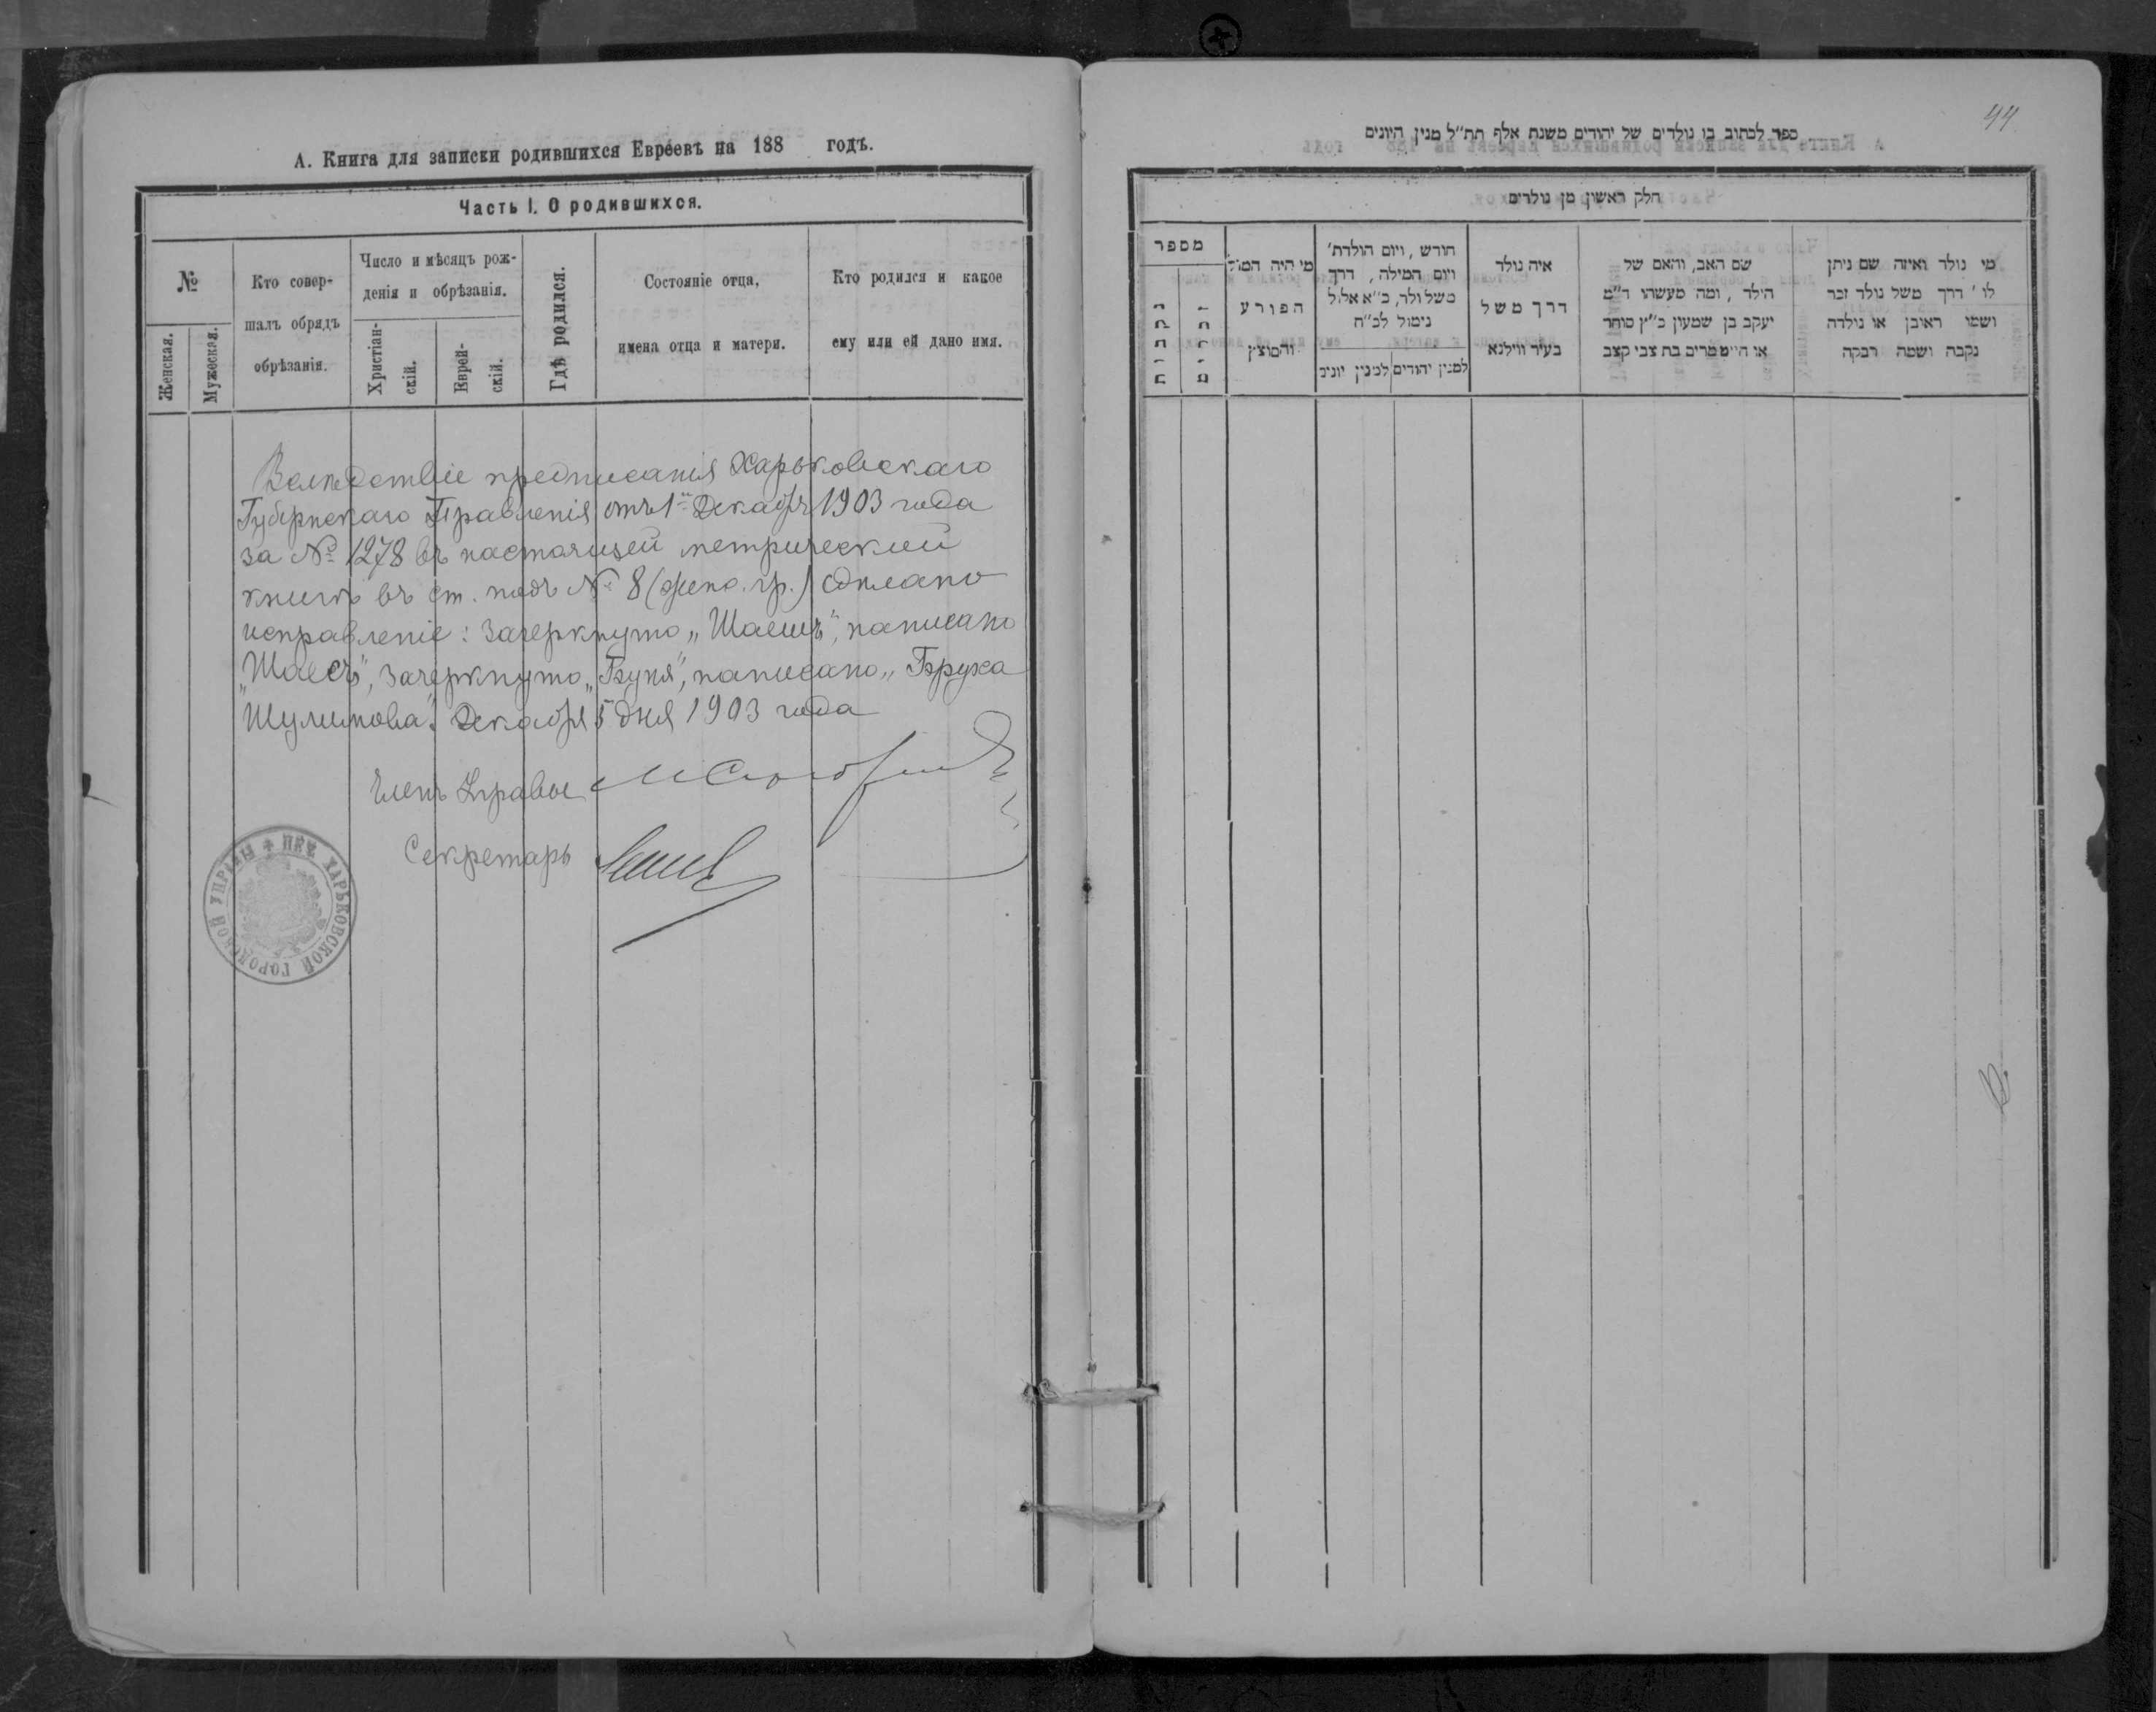 А. Книга для записки родившихся Евреевъ на 188 годъ.
Часть I. О родившихся.
№
Женская.
Мужеская.
Кто совер-
шалъ обрядъ
обрѣзанія.
Число и мѣсяцъ рож-
денія и обрѣзанія.
Христіан-
скій.
Еврей-
скій.
Гдѣ родился.
Состояніе отца,
имена отца и матери.
Кто родился и какое
ему или ей дано имя.
Вслѣдствіе предписанія Харьковскаго
Губернскаго Правленія отъ 1го Декабря 1903 года
за № 1278 въ настоящей метрической
книгѣ въ ст. подъ № 8 (женс. гр.) сдѣлано
исправленіе: зачеркнуто „Шаешъ", написано
„Шаесъ", зачеркнуто „Буня", написано „Бруха
Шулимова". Декабря 5 дня 1903 года
Членъ Управы
Секретарь
ПЕЧ. ХАРЬКОВСКОЙ ГОРОДСКОЙ УПРАВЫ
44
ספר לכתוב בו נולדים של יהודים משנת אלף תת״ל מנין היונים
חלק ראשון מן נולדים
מספר
נקבות
זכרים
מי היה המוהל
הפורע
והמוצץ
חורש, ויום הולדת'
ויום המילה, דרך
משל ולד, כ״א אלול
נימול לכ״ח
למנין יהודים
למנין יונים
איה נולד
דרך משל
בעיר ווילנא
שם האב, והאם של
הילד, ומה מעשהו ד״מ
יעקב בן שמעון כ״ץ סוחר
או חייט מרים בת צבי קצב
מי נולד ואיזה שם ניתן
לו' דרך משל נולד זכר
ושמו ראובן או נולדה
נקבה ושמה רבקה